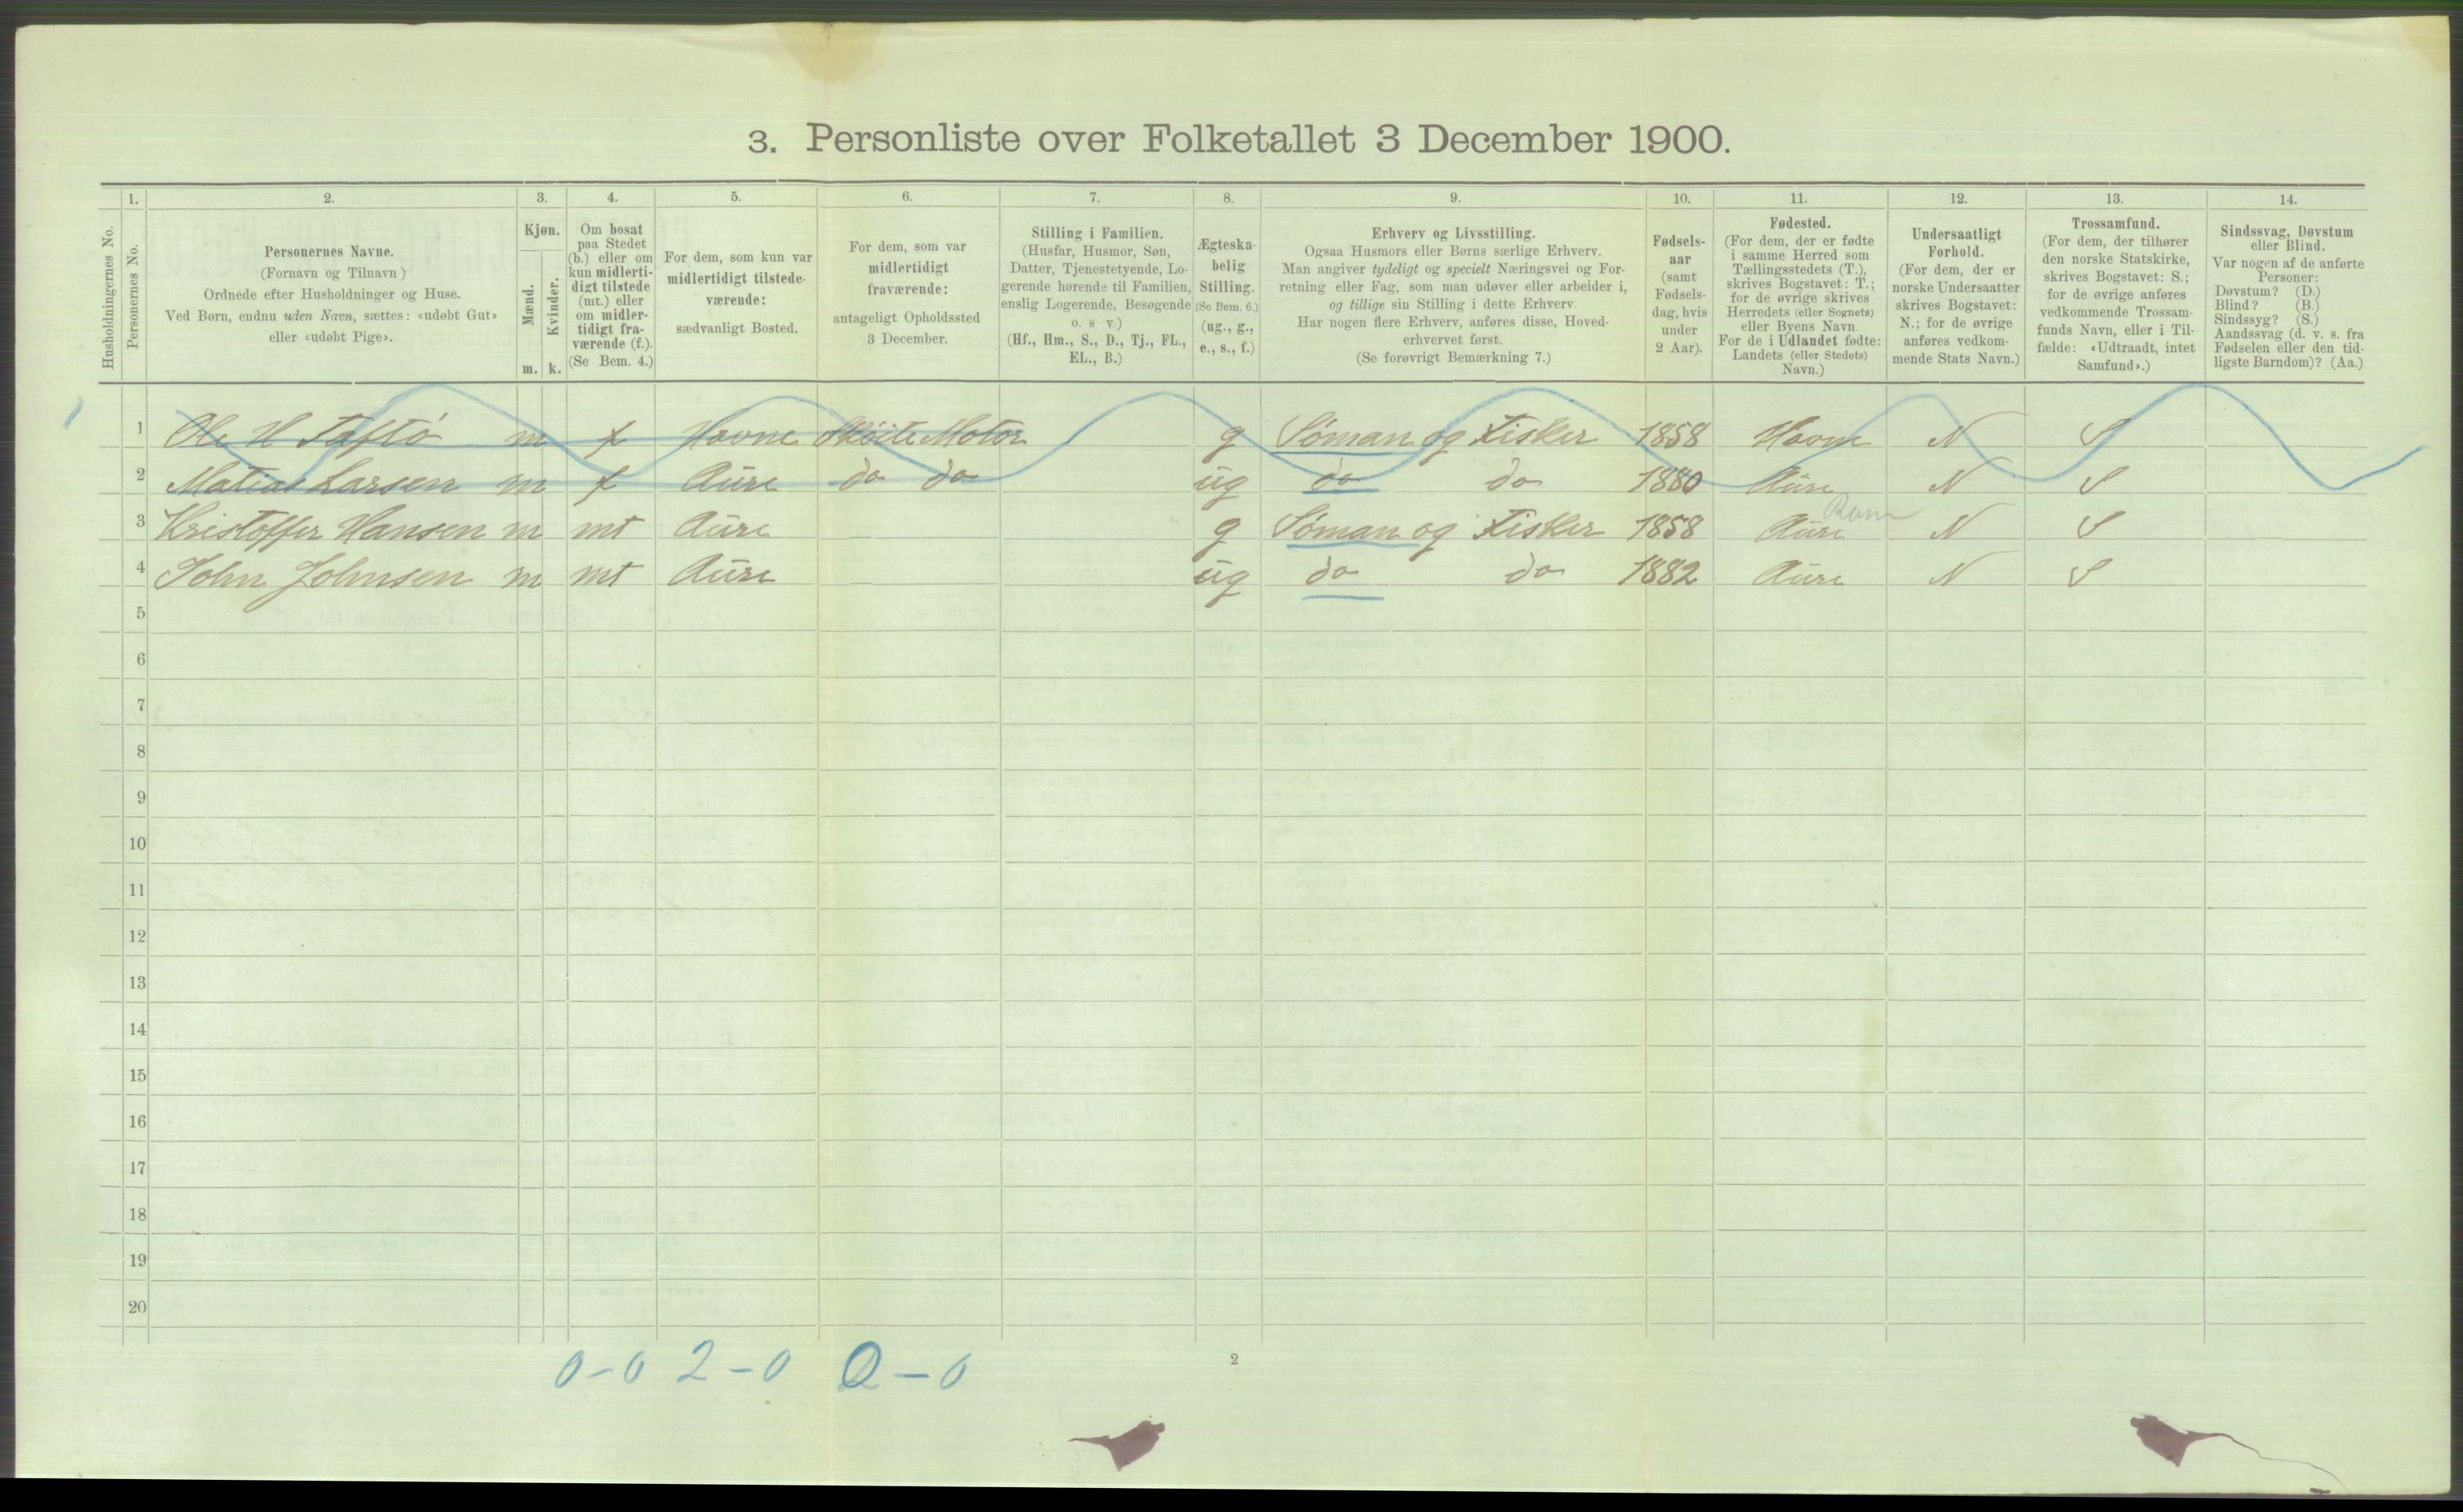 3. Personliste over Folketallet 3 December 1900.
1. 2. 3. 4. 5. 6. 7. 8. 9. 10. 11. 12. 13. 14.
Husholdningernes No.
Personernes No.
Personernes Navne.
(Fornavn og Tilnavn )
Ordnede efter Husholdninger og Huse.
Ved Børn, endnu uden Navn, sættes: «udøbt Gut»
eller «udøbt Pige».
Kjøn.
Mænd.
Kvinder.
m. k.
Om bosat
paa Stedet
(b.) eller om
kun midlerti-
digt tilstede
(mt.) eller
om midler-
tidigt fra-
værende (f.).
(Se Bem. 4.)
For dem, som kun var
midlertidigt tilstede-
værende:
sædvanligt Bosted.
For dem, som var
midlertidigt
fraværende:
antageligt Opholdssted
3 December.
Stilling i Familien.
(Husfar, Husmor, Søn,
Datter, Tjenestetyende, Lo-
gerende hørende til Familien,
enslig Logerende, Besøgende
o. s v.)
(Hf., Hm., S., D., Tj., FL.,
EL., B.)
Ægteska-
belig
Stilling.
(Se Bem. 6.)
(ug., g.,
e., s., f.)
Erhverv og Livsstilling.
Ogsaa Husmors eller Børns særlige Erhverv.
Man angiver tydeligt og specielt Næringsvei og For-
retning eller Fag, som man udøver eller arbeider i,
og tillige sin Stilling i dette Erhverv.
Har nogen flere Erhverv, anføres disse, Hoved-
erhvervet først.
(Se forøvrigt Bemærkning 7.)
Fødsels-
aar
(samt
Fødsels-
dag, hvis
under
2 Aar).
Fødested.
(For dem, der er fødte
i samme Herred som
Tællingsstedets (T.),
skrives Bogstavet: T.;
for de øvrige skrives
Herredets (eller Sognets)
eller Byens Navn.
For de i Udlandet fødte:
Landets (eller Stedets)
Navn.)
Undersaatligt
Forhold.
(For dem, der er
norske Undersaatter
skrives Bogstavet:
N.; for de øvrige
anføres vedkom-
mende Stats Navn.)
Trossamfund.
(For dem, der tilhører
den norske Statskirke,
skrives Bogstavet: S.;
for de øvrige anføres
vedkommende Trossam-
funds Navn, eller i Til-
fælde: «Udtraadt, intet
Samfund».)
Sindssvag, Døvstum
eller Blind.
Var nogen af de anførte
Personer:
Døvstum? (D.)
Blind? (B.)
Sindssyg? (S.)
Aandssvag (d. v. s. fra
Fødselen eller den tid-
ligste Barndom)? (Aa.)
1 Ole H Taftö m f Havne Sköite Motor g Söman og Fisker 1858 Havne N S
2 Matias Larsen m f Aure do do ug do do 1880 Aure N S
3 Kristoffer Hansen m mt Aure g Söman og Fisker 1858 Aure N S
4 John Johnsen m mt Aure ug do do 1882 Aure N S
5
6
7
8
9
10
11
12
13
14
15
16
17
18
19
20
0-0 2-0 0-0
2